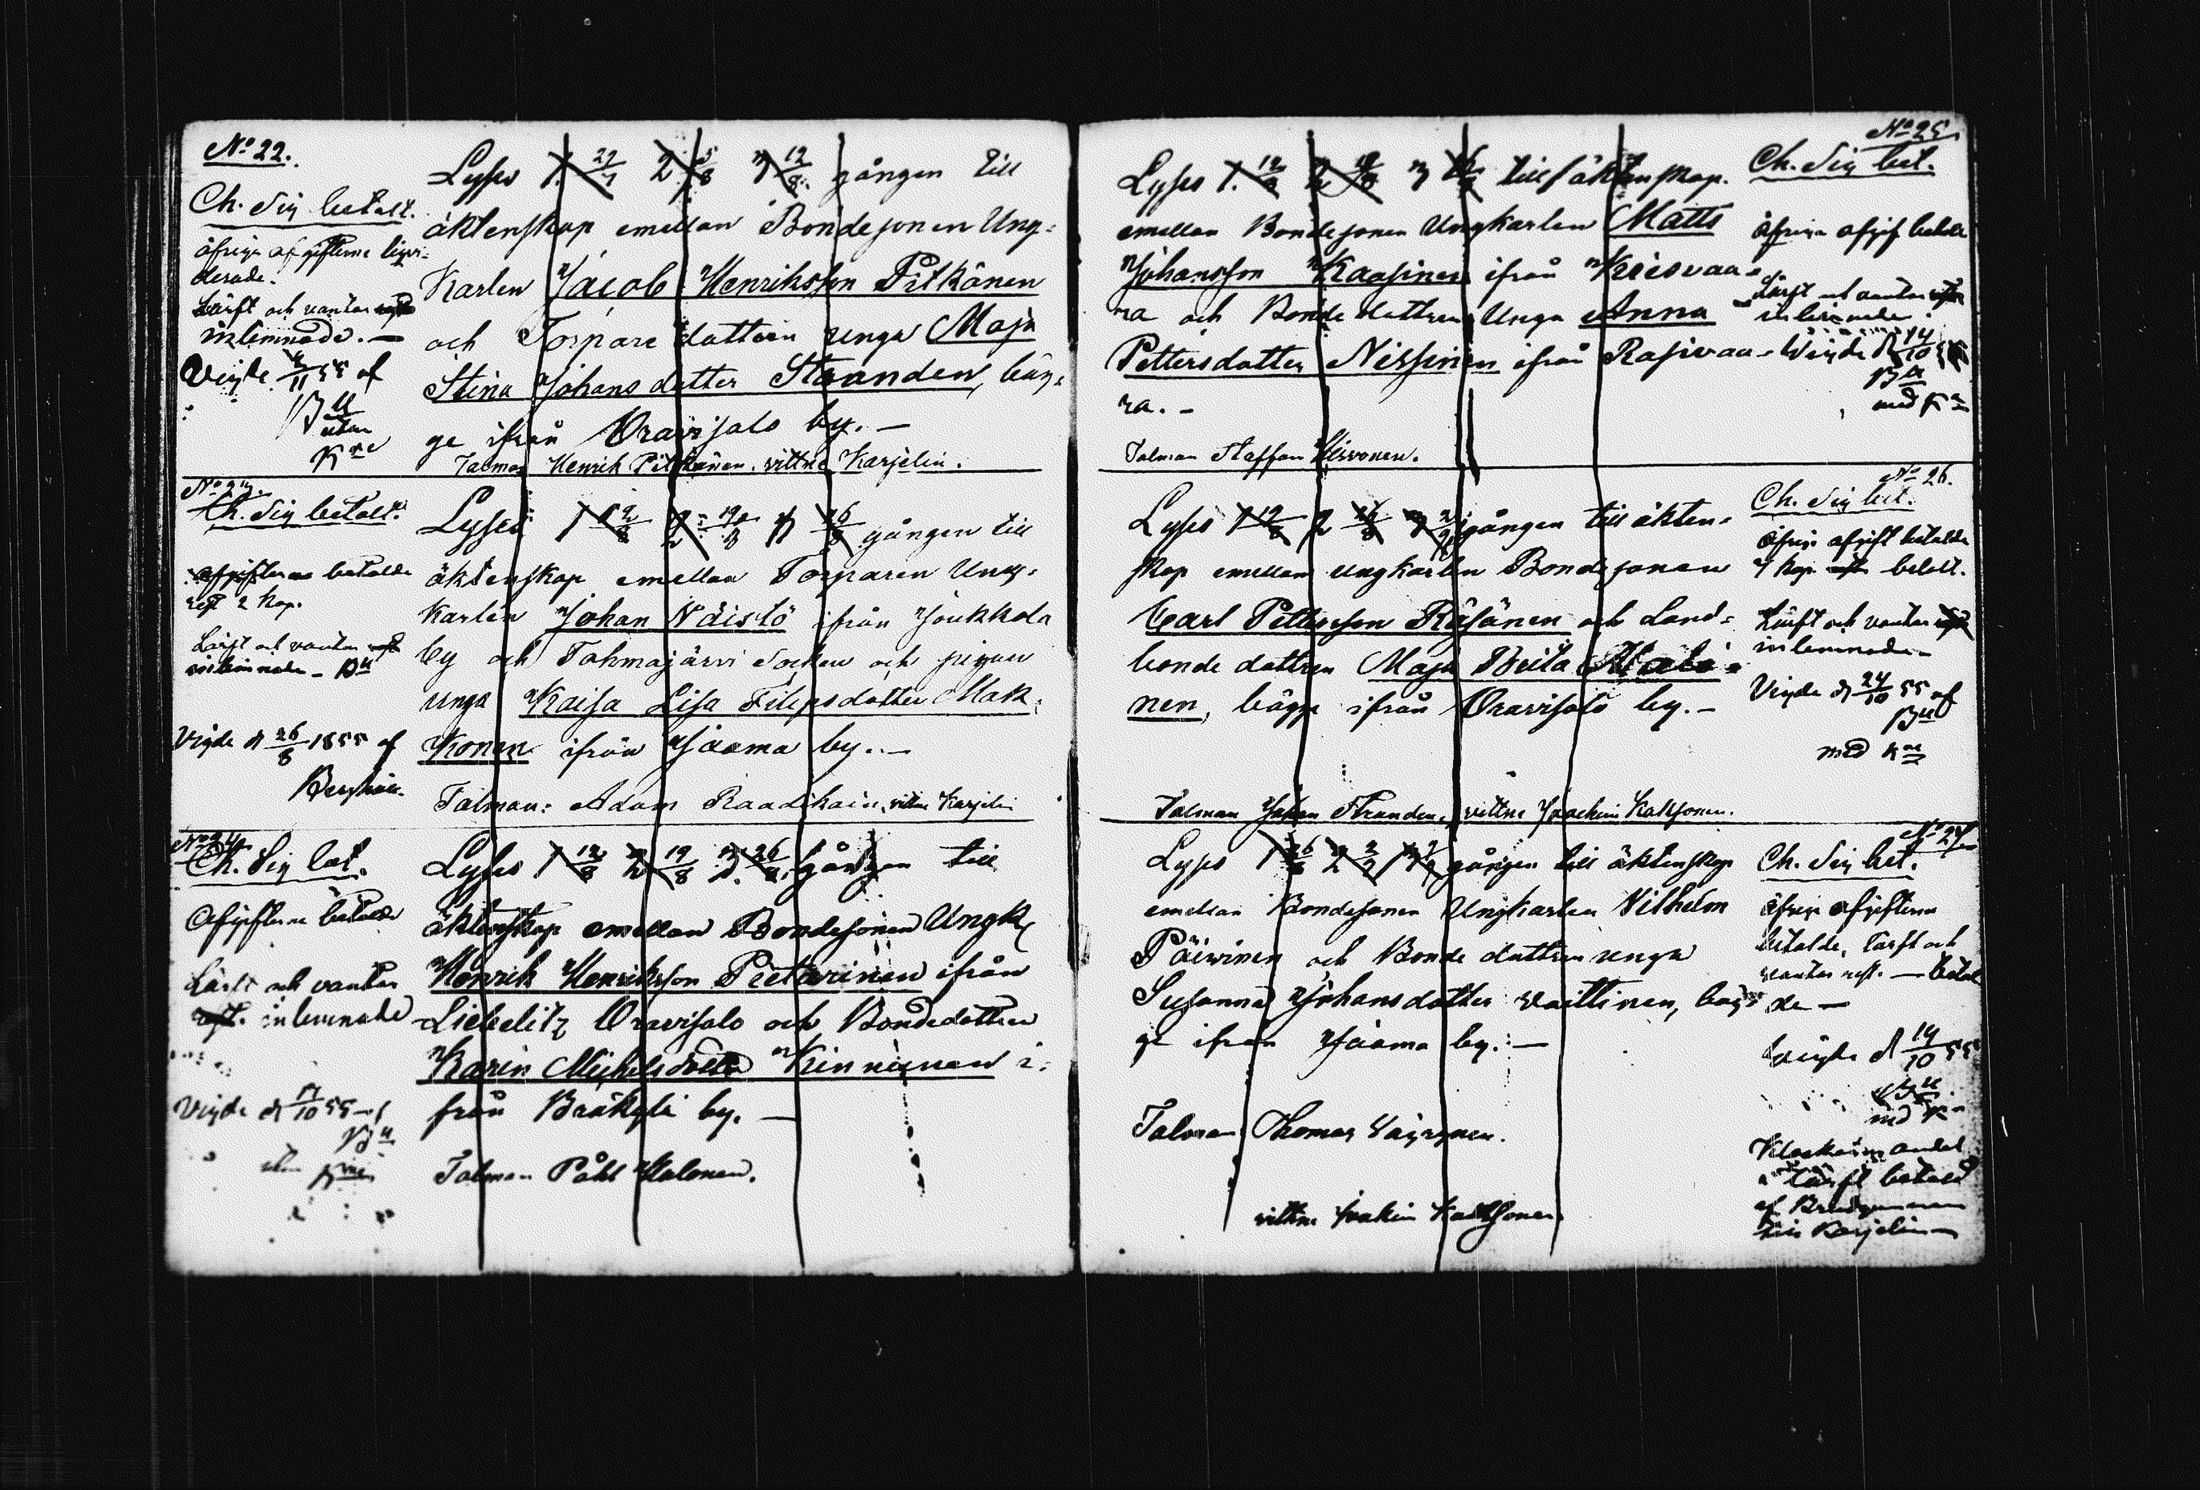 No 22.
Ch. Sig betalt.
öfriga afgifterna liqvi-
derade.
Lärft och vantar
inlemnade. —
Vigde 4/11 55 af
Bll
utan
Kne
Lyses 1. 29/7 2 5/8 3 12/8. gången till
äktenskap emellan Bondesonen Ung-
karlen Jacob Henriksson Pitkänen
och Torpare dottren unga Maja
Stina Johansdotter Stranden, bäg-
ge ifrån Oravisalo by. —
Talman Henrik Pitkänen. vittne Karjelin.
No 23.
Ch. Sig betalt.
Afgifterna betalde
rest 2 kop.
Lärft och vantar rest
inlemnade - Bll
Vigde d 26/8 1855 af
Lyses 1 12/8 2 19/8 3 26/8 gången till
äktenskap emellan Torparen Ung-
karlen Johan Näistö ifrån Joukkola
by och Tohmajärvi Socken och pigan
unga Kaisa Lisa Filipsdotter Mak-
konen ifrån Jaama by. —
Talman: Adam Raadikain, vittne Karjelin
No 24.
Ch. Sig bet.
Afgifterna betalde
Lärft och vantar
rest. inlemnade
Vigde d 17/10 55 af
Bll
utan Kne
Lyses 1 12/8 2 19/8 3. 26/8. gången till
äktenskap emellan Bondesonen Ungk
Henrik Henriksson Pietarinen ifrån
Liebelitz Oravisalo och Bondedottren
Karin Michelsdotter Kinnunen i-
från Bräkylä by. —
Talman Påhl Halonen.
No 25
Lyses 1. 12/8 2 19/8 3 26/8 till äktenskap.
emellan Bondesonen Ungkarlen Matts
Johansson Kaasinen ifrån Kiesvaa-
ra och Bonde dottren Unga Anna
Pettersdotter Nissinen ifrån Rasivaa-
ra. —
Talman Staffan Hirvonen.
Ch. Sig bet.
öfriga afgif betalde
Lärft och vantar rest
inlemnade
Vigde d 14/10 55
Bll
med Kne
No 26.
Lyses 1 19/8 2 26/8 3 2/9 gången till äkten-
skap emellan ungkarlen Bondesonen
Carl Pettersson Räsänen och Land-
bonde dottren Maja Brita Halo-
nen, bägge ifrån Oravisalo by. —
Talman Johan Stranden, vittne Joachim Kaksonen.
Ch. Sig bet.
öfrige afgift betalde
7 kop. rest betalt.
Lärft och vantar rest
inlemnade —
Vigde d 24/10 55 af
Bll
med Kne
No 27
Lyses 1 26/8 2 2/9 3 9/9 gången till äktenskap
emellan Bondesonen Ungkarlen Vilhelm
Päivinen och Bonde dottren unga
Susanna Johansdotter Vaittinen, bäg-
ge ifrån Jaama by. —
Talman Thomas Väyrynen.
vittne Joakim Kaksonen
Ch. Sig bet.
öfrige afgifterna
betalde, Lärft och
vantar rest. — betal
de —
Vigde d 14/10 55
Bll
med Kne
Klockarens andel
i lärft betald
af Brudgummen
till Karjelin —